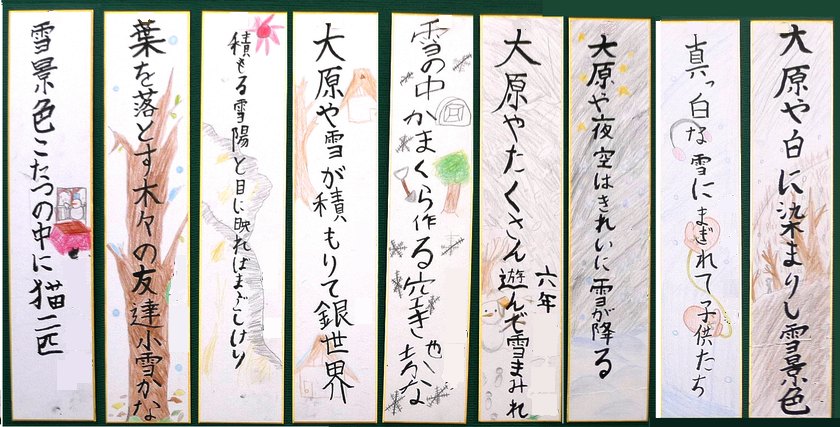 大原や白に染まりし雪景色
真っ白な雪にまぎれて子供たち
大原や夜空はきれいに雪が降る
六年
大原やたくさん遊んで雪まみれ
雪の中かまくら作る空き地かな
大原や雪が積もりて銀世界
積もる雪陽と目に映ればまぶしけり
葉を落とす木々の友達小雪かな
雪景色こたつの中に猫二匹